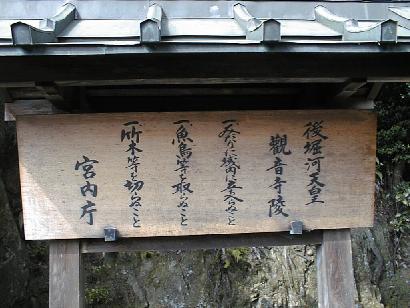 後堀河天皇
觀音寺陵
一、みだりに域内に立入らぬこと
一、魚鳥等を取らぬこと
一、竹木等を切らぬこと
宮内庁